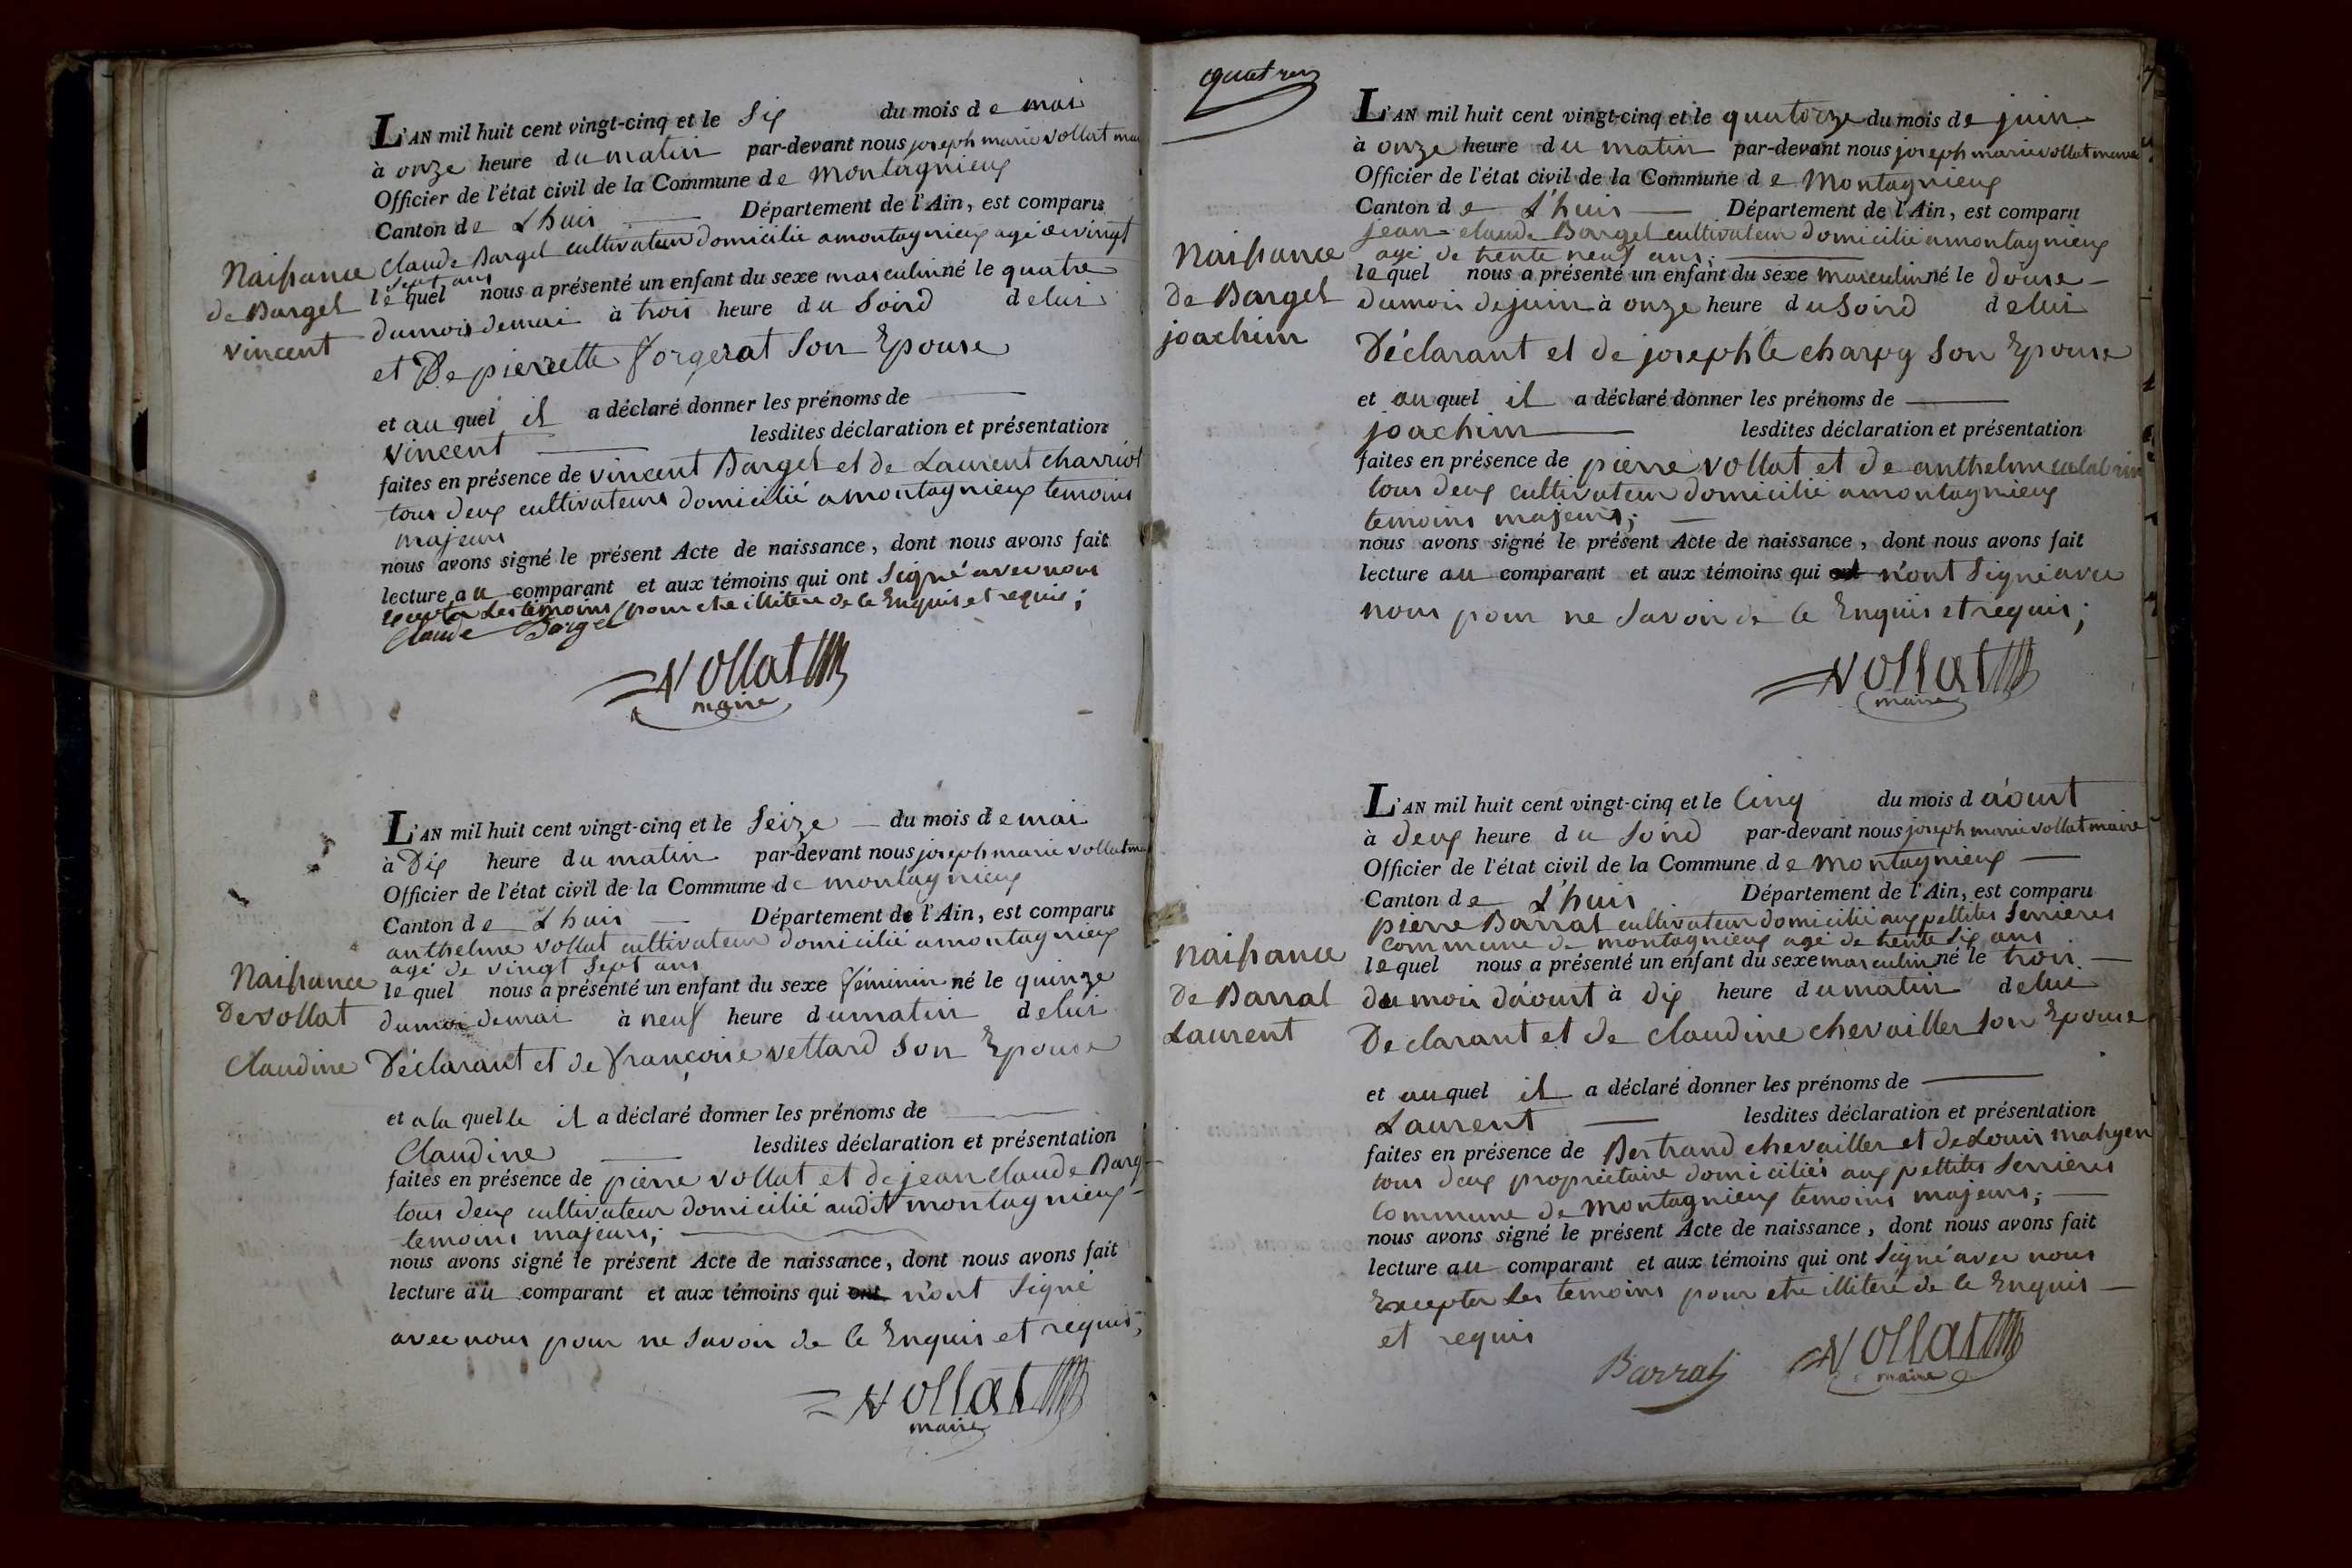 L'AN mil huit cent vingt-cinq et le Six du mois de mai
à onze heure du matin par-devant nous joseph marie vollat
Officier de l'état civil de la Commune de Montagnieux
Canton de Lhuis Département de l'Ain, est comparu
Claude Barget cultivateur domicilié a montagnieux agé de vingt
sept ans
Naissance
de Barget
vincent
lequel nous a présenté un enfant du sexe masculin né le quatre
du mois de mai à trois heure du Soird de lui
et De pierrette forgerat Son Epouse
et au quel il a déclaré donner les prénoms de
Vincent lesdites déclaration et présentation
faites en présence de vincent Barget et de Laurent charriot
tous deux cultivateurs domicilié a montagnieux temoins
majeurs
nous avons signé le présent Acte de naissance, dont nous avons fait
lecture au comparant et aux témoins qui ont Signé avec nous
Les témoins pour etre illitere de le Enquis et requis;
Claude Barget
Vollat
maire
L'AN mil huit cent vingt-cinq et le Seize du mois de mai
à Dix heure du matin par-devant nous joseph marie vollat
Officier de l'état civil de la Commune de montagnieux
Canton de Lhuis Département de l'Ain, est comparu
anthelme vollat cultivateur domicilié a montagnieux
agé de vingt Sept ans
Naissance
De vollat
Claudine
lequel nous a présenté un enfant du sexe féminin né le quinze
du moi de mai à neuf heure du matin de lui
Déclarant et de françoise vettard Son Epouse
et a la quelle il a déclaré donner les prénoms de
Claudine lesdites déclaration et présentation
faites en présence de pierre vollat et de jean claude Barg
tous deux cultivateur domicilié audit montagnieux
temoins majeurs;
nous avons signé le présent Acte de naissance, dont nous avons fait
lecture au comparant et aux témoins qui ont n'ont Signé
avec nous pour ne Savoir de le Enquis et requis;
Vollat
maire
L'AN mil huit cent vingt-cinq et le quatorze du mois de juin
à onze heure du matin par-devant nous joseph marie vollat maire
Officier de l'état civil de la Commune de Montagnieux
Canton de L'huis Département de l'Ain, est comparu
jean-claude Barget cultivateur domicilié a montagnieux
agé de trente neuf ans;
Naissance
de Barget
joachim
lequel nous a présenté un enfant du sexe masculin né le douse
du moi de juin à onze heure du Soird de lui
Déclarant et de josephte charpy Son Epouse
et au quel il a déclaré donner les prénoms de
joachim lesdites déclaration et présentation
faites en présence de pierre vollat et de anthelme
tous deux cultivateur domicilié a montagnieux
temoins majeurs;
nous avons signé le présent Acte de naissance, dont nous avons fait
lecture au comparant et aux témoins qui ont n'ont Signé avec
nous pour ne Savoir de le Enquis et requis;
Vollat
maire
L'AN mil huit cent vingt-cinq et le Cinq du mois d'aoust
à deux heure du Soird par-devant nous joseph marie vollat maire
Officier de l'état civil de la Commune de Montagnieux
Canton de L'huis Département de l'Ain, est comparu
pierre Barrat cultivateur domicilié aux pettites Serrieres
Commune de montagnieux agé de trente Six ans
Naissance
De Barrat
Laurent
lequel nous a présenté un enfant du sexe masculin né le trois
du moi d'aoust à dix heure du matin de lui
Declarant et de claudine chevailler Son Epouse
et au quel il a déclaré donner les prénoms de
Laurent lesdites déclaration et présentation
faites en présence de Bertrand chevailler et de Louis
tous deux propriétaire domiciliés aux pettites Serrieres
Commune de Montagnieux temoins majeurs;
nous avons signé le présent Acte de naissance, dont nous avons fait
lecture au comparant et aux témoins qui ont Signé avec nous
Excepter Les temoins pour etre illitere de le Enquis
et requis
Barrat
Vollat
maire